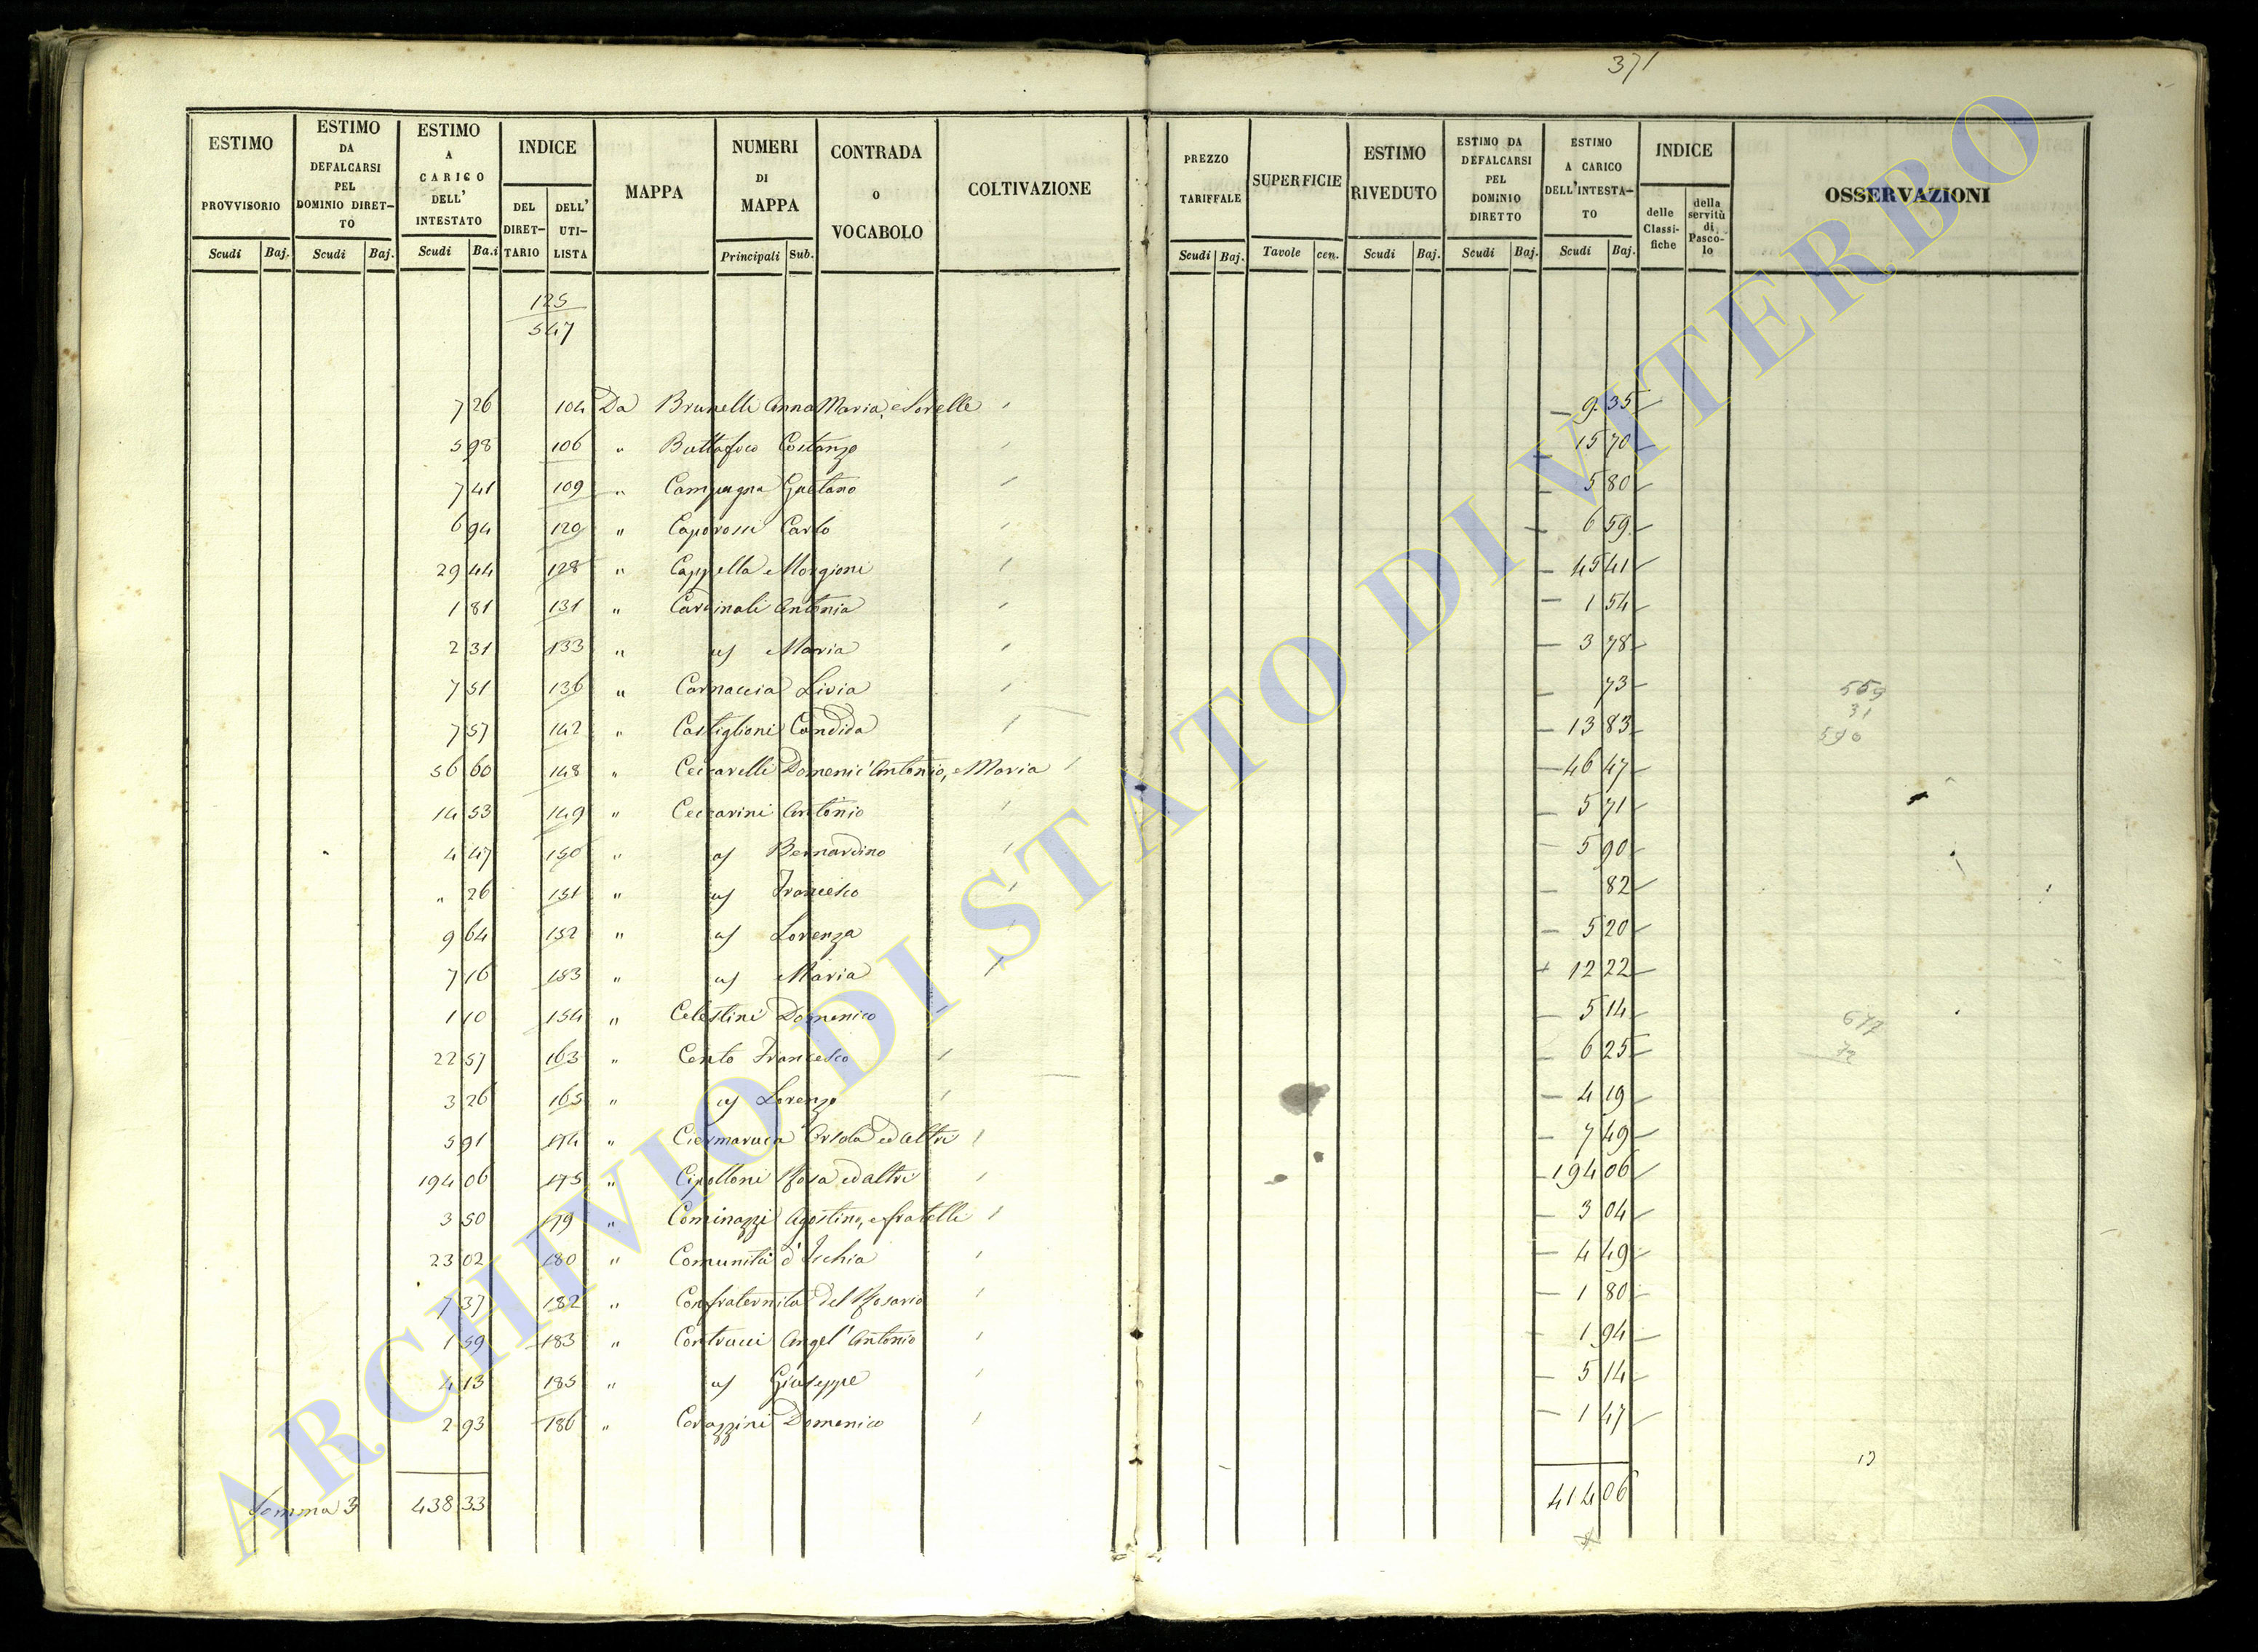 371
ESTIMO PROVVISORIO Scudi Baj.
ESTIMO DA DEFALCARSI PEL DOMINIO DIRETTO Scudi Baj.
ESTIMO A CARICO DELL' INTESTATO Scudi Ba.i
INDICE DEL DIRETTARIO DELL' UTILISTA
MAPPA
NUMERI DI MAPPA Principali Sub.
CONTRADA o VOCABOLO
COLTIVAZIONE
PREZZO TARIFFALE Scudi Baj.
SUPERFICIE Tavole cen.
ESTIMO RIVEDUTO Scudi Baj.
ESTIMO DA DEFALCARSI PEL DOMINIO DIRETTO Scudi Baj.
ESTIMO A CARICO DELL'INTESTATO Scudi Baj.
INDICE delle Classifiche della servitù di Pascolo
OSSERVAZIONI
125
547
7 26 104 Da Brunelli Anna Maria, e Sorelle 9 35
5 98 106 " Buttafoco Costanzo 15 70
7 41 109 " Campagna Gaetano 5 80
6 94 120 " Caporossi Carlo 6 59
29 44 128 " Cappella e Morgioni 45 41
1 81 131 " Cardinali Antonia 1 54
2 31 133 " as Maria 3 78
7 51 136 " Carnaccia Livia 73
7 57 142 " Castiglioni Candida 13 83
56 60 148 " Ceccarelli Domenic'Antonio, e Maria 46 47
14 53 149 " Ceccarini Antonio 5 71
4 47 150 " as Bernardino 5 90
" 26 151 " as Francesco 82
9 64 152 " as Lorenza 5 20
7 16 153 " as Maria 12 22
1 10 154 " Celestini Domenico 5 14
22 57 163 " Cento Francesco 6 25
3 26 165 " as Lorenzo 4 19
5 91 174 " Ciermaruca Orsola ed altri 7 49
194 06 175 " Cipolloni Rosa ed altri 194 06
3 50 179 " Cominazzi Agostino, e fratelli 3 04
23 02 180 " Comunità d'Ischia 4 49
7 37 182 " Confraternita del Rosario 1 80
1 59 183 " Contrucci Angel'Antonio 1 94
4 13 185 " as Giuseppe 5 14
2 93 186 " Corazzini Domenico 1 47
Somma 3 438 33 414 06
559
31
590
677
72
13
ARCHIVIO DI STATO DI VITERBO